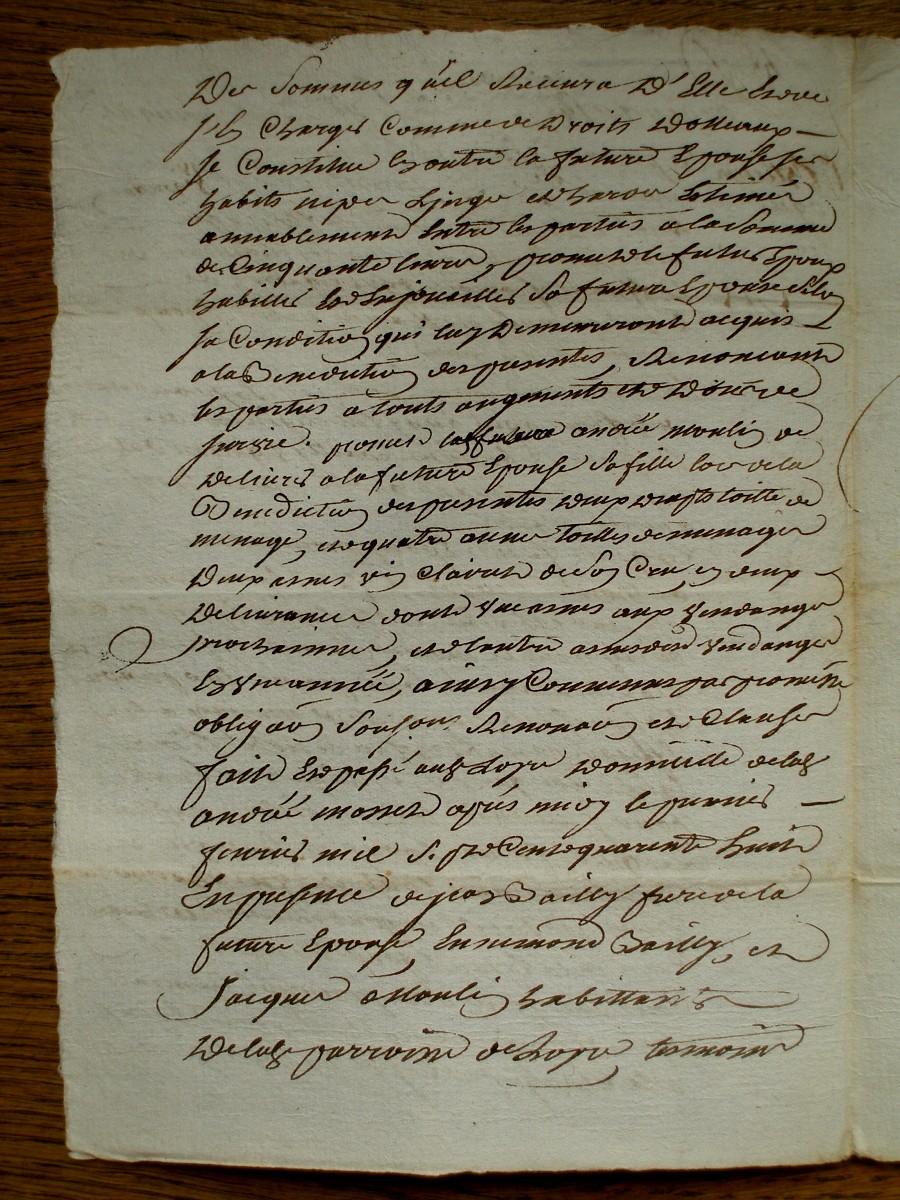 Des sommes qu'il recevra d'Elle et de
ses charges comme de droits nouveaux
se constitue en outre la future Epouse ses
habits nipes linge et hardes Estimés
amiablement Entre les parties a la somme
de Cinquante livres, promet le futur Epoux
habiller et Enjoueiller sa future Epouse selon
sa Condition qui luy Demeureront acquis
a la Benediction des presentes, Renoncant
les parties a touts augments et Dons de
survie. promet André moulin de
Delivrer a la future Epouse sa fille lors de la
Benediction des presentes deux draps toille de
menage, et quatre aunes toilles de menage
Deux annés vin Clairet de son Cru, en deux
Delivrances dont une annés aux vendanges
prochaines, et l'autre annés des vendanges
En une année, ainsy Convenus par promesse
obligaon Soubs Renonaon et Clauses
fait et passé aud Loyre Domicille dud
André apres midy le premier
fevrier mil sept Cent quarante huit
En presence de jean Bailly frere de la
future Epouse, Enemond Bailly, et
Jacques Moulin habittants
de lad parroisse de Loyre temoins